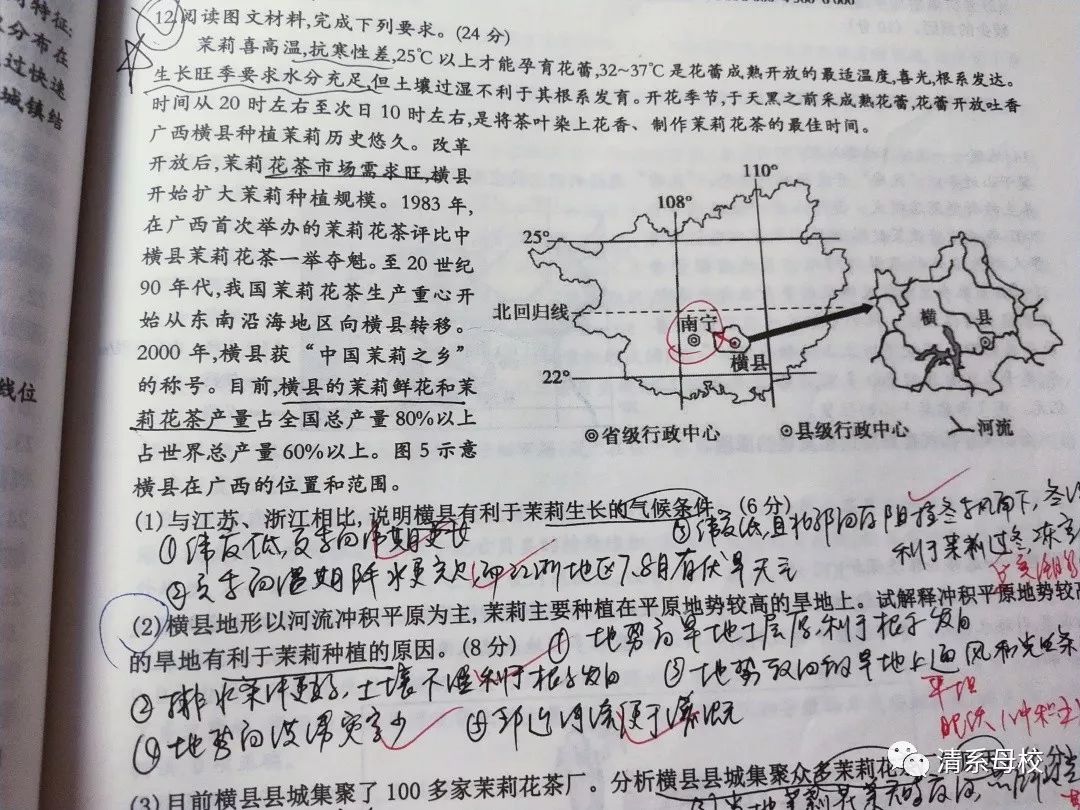 特征;
分布在
过快速
城镇结
线位
12.阅读图文材料,完成下列要求。(24分)
茉莉喜高温,抗寒性差,25℃以上才能孕育花蕾,32~37℃是花蕾成熟开放的最适温度,喜光,根系发达。
生长旺季要求水分充足,但土壤过湿不利于其根系发育。开花季节,于天黑之前采成熟花蕾,花蕾开放吐香
时间从20时左右至次日10时左右,是将茶叶染上花香、制作茉莉花茶的最佳时间。
广西横县种植茉莉历史悠久。改革
开放后,茉莉花茶市场需求旺,横县
开始扩大茉莉种植规模。1983年,
在广西首次举办的茉莉花茶评比中
横县茉莉花茶一举夺魁。至20世纪
90年代,我国茉莉花茶生产重心开
始从东南沿海地区向横县转移。
2000年,横县获“中国茉莉之乡”
的称号。目前,横县的茉莉鲜花和茉
莉花茶产量占全国总产量80%以上
占世界总产量60%以上。图5示意
横县在广西的位置和范围。
110°
108°
25°
北回归线
南宁
横县
22°
横 县
◎省级行政中心 ⊙县级行政中心 河流
(1)与江苏、浙江相比,说明横县有利于茉莉生长的气候条件。(6分)
①纬度低,夏季高温期更长
③纬度低,且北部山区阻挡冬季风南下,冬
利于茉莉过冬,冻害
②夏季高温期降水更充足,而江浙地区7、8月有伏旱天气
(2)横县地形以河流冲积平原为主,茉莉主要种植在平原地势较高的旱地上。试解释冲积平原地势较高
的旱地有利于茉莉种植的原因。(8分) ①地势高旱地土层厚,利于根系发育
②排水条件更好,土壤不湿利于根系发育 ③地势较高的旱地上通风和光照条
平坦
④地势高洪涝灾害少 ⑤邻近河流便于灌溉
肥沃(冲积土
(3)目前横县县城集聚了100多家茉莉花茶厂。分析横县县城集聚众多茉莉花
清系母校